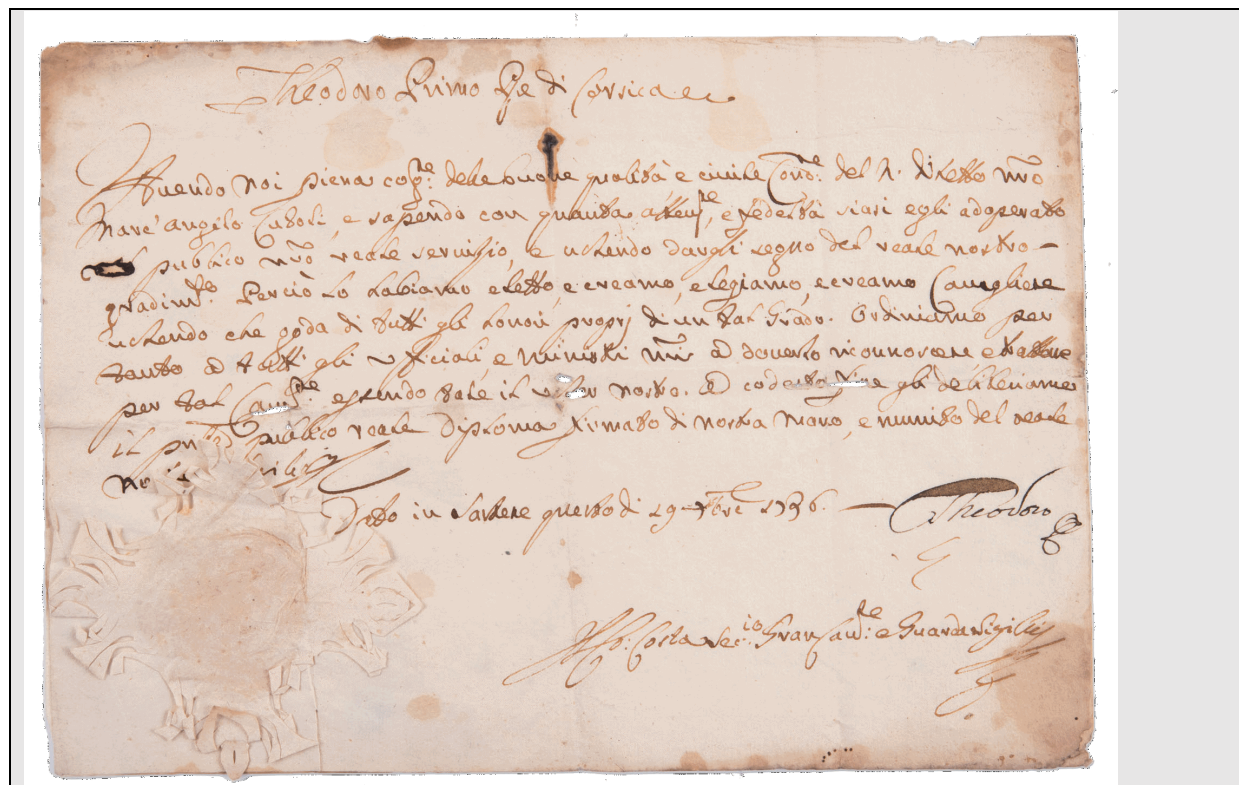 Theodoro Primo Re di Corsica ec
Avendo Noi piena cog.ne delle buone qualità e civile Cond.ne del N. diletto nrõ
Marc'angilo, e sapendo con quanta atten.ne, e fedeltà siasi egli adoperato
publico nrõ reale servizio, e volendo dargli segno del reale nostro
gradim.to Perciò Lo habiamo eletto, e creamo, elegiamo, e creamo Cavagliere
volendo che goda di tutti gli honori proprj di un tal Grado. Ordiniamo per
tanto à tutti gli Ufficiali, e Ministri nrĩ à doverlo riconnoscere, e trattare
per tal Cavag.re essendo tale il voler nostro. A codesto fine gli
il publico reale Diploma firmato di nostra Mano, e munito del reale
Dato in Sartene questo di 29 1736. Theodoro
Costa Seg.io Gran Can.re e Guardasigilli